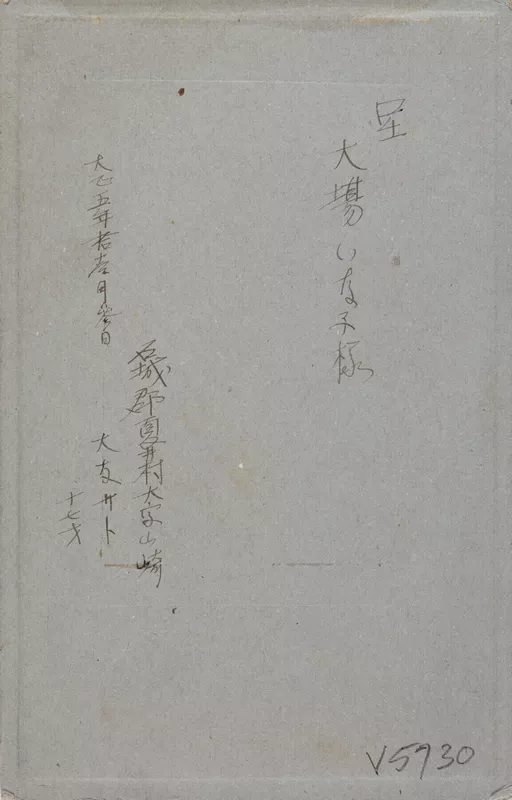 呈
大場いな子様
大正五年拾壱月参日
石城郡夏井村大字山崎
大友サト
十七才
V5730